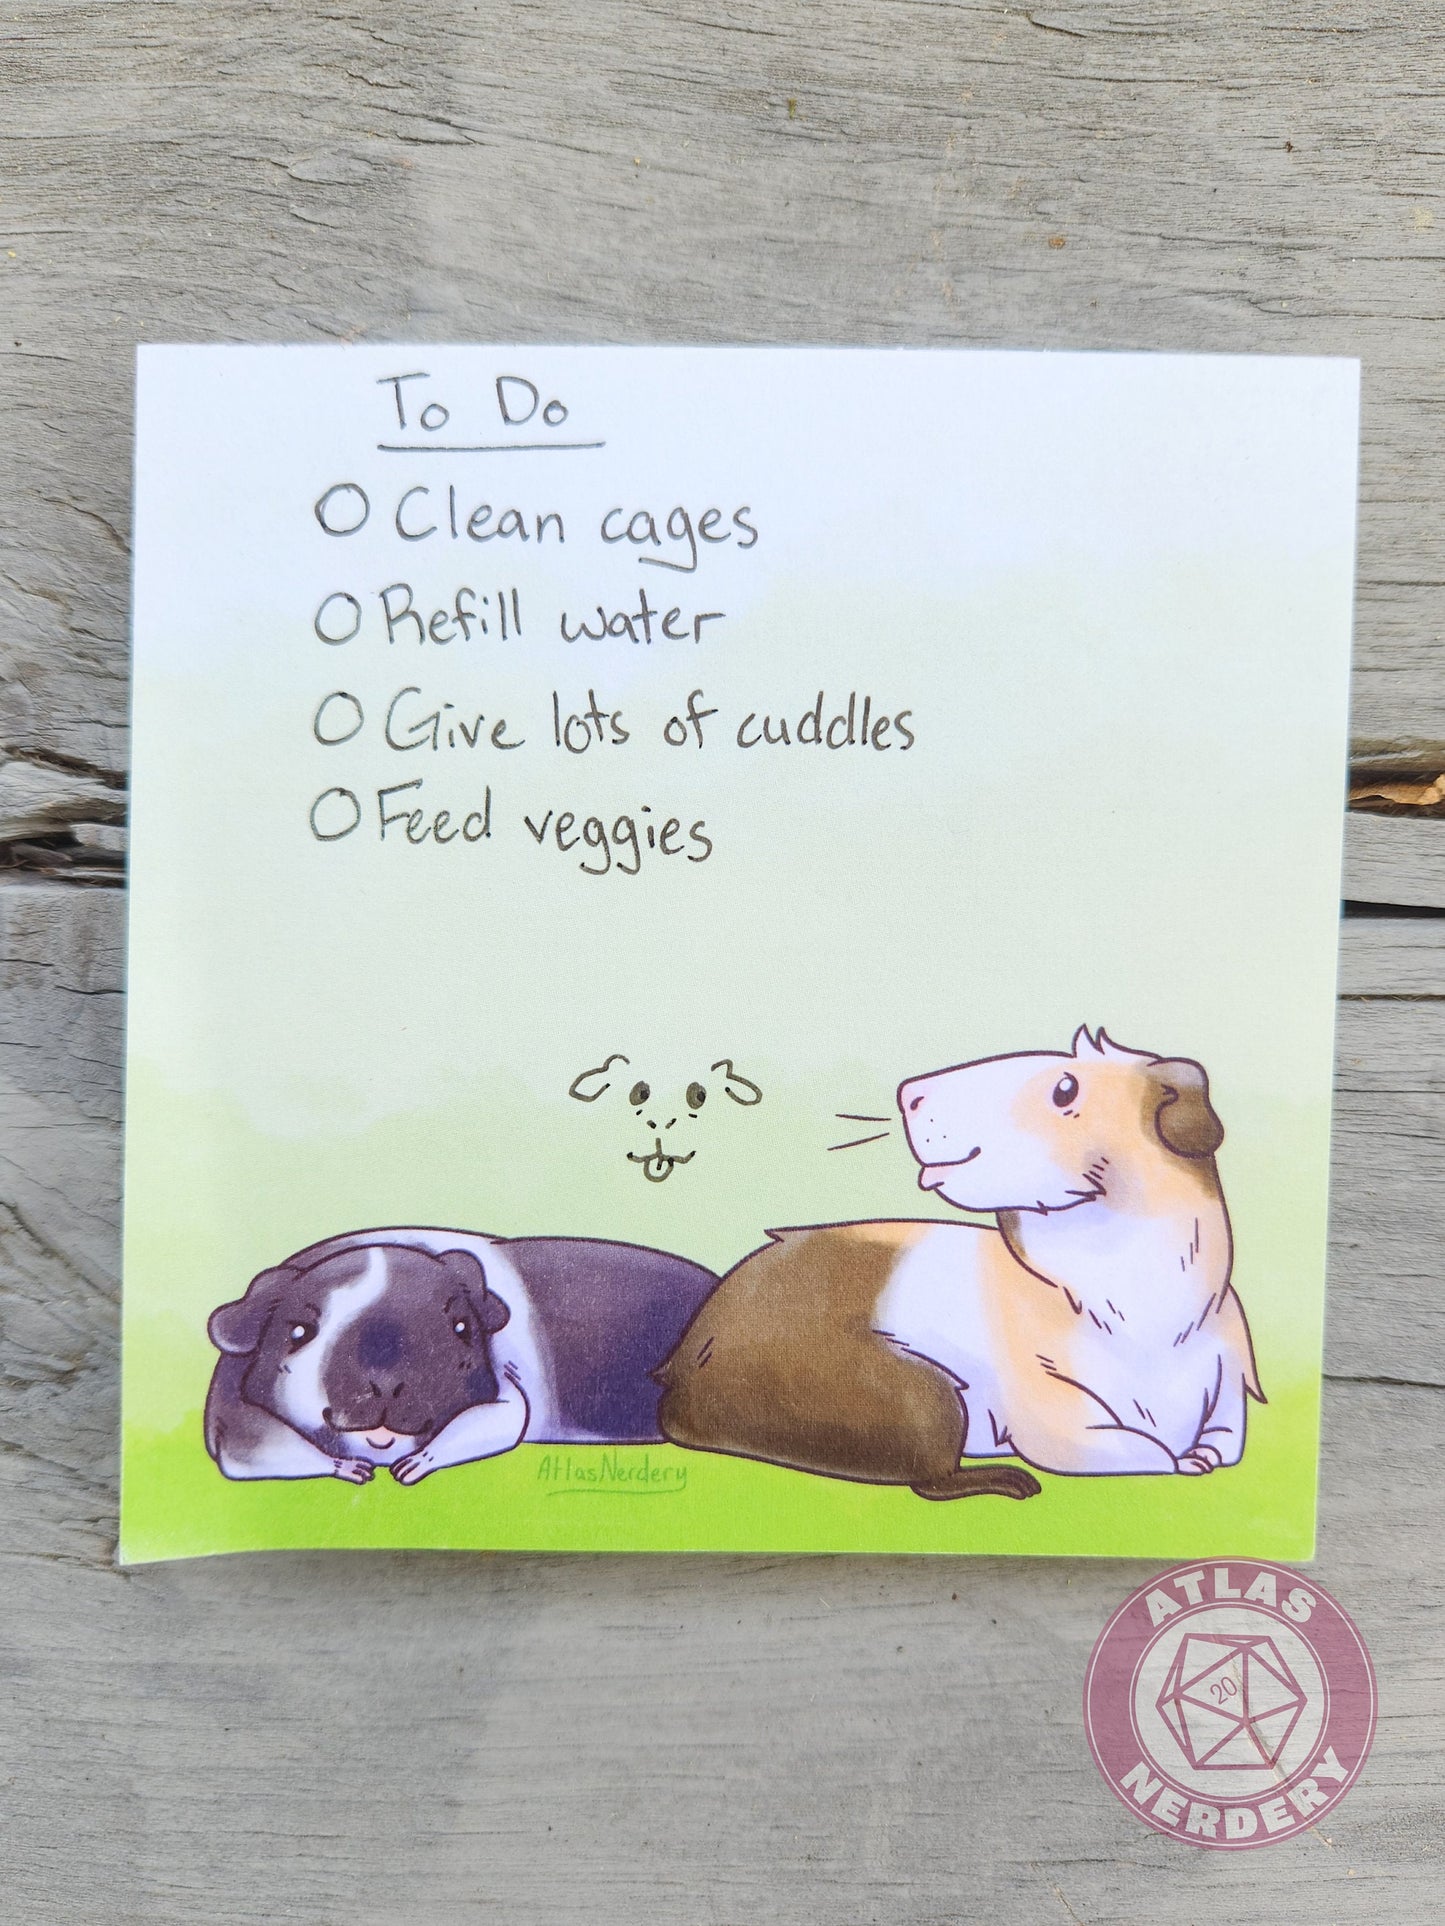 To Do
O Clean cages
O Refill water
O Give lots of cuddles
O Feed veggies
AtlasNerdery
ATLAS
20
NERDERY